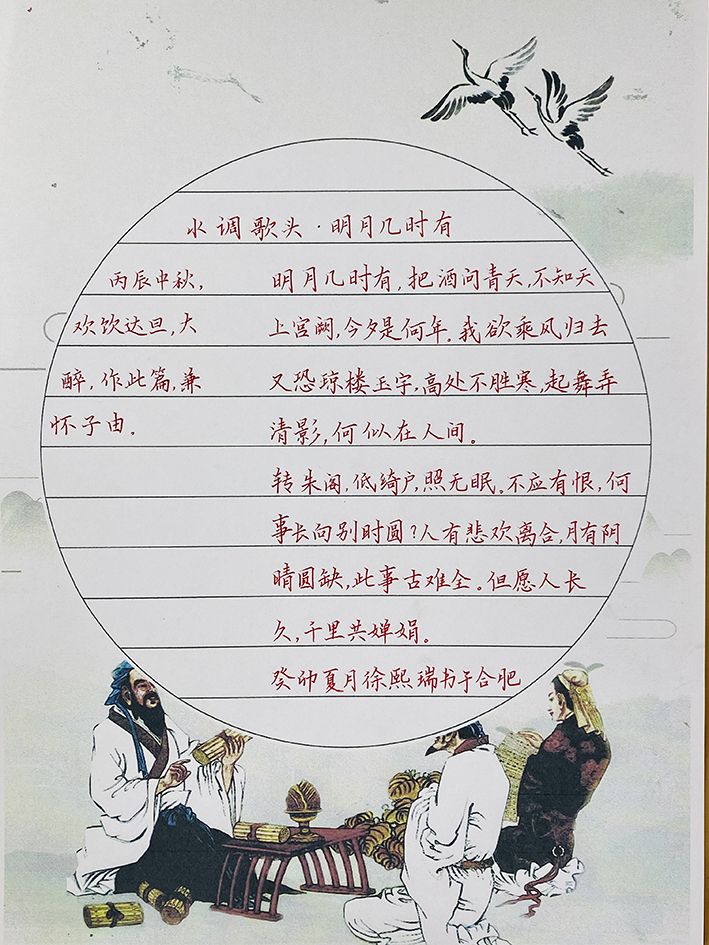 水调歌头·明月几时有
丙辰中秋,
欢饮达旦,大
醉,作此篇,兼
怀子由。
明月几时有,把酒问青天,不知天
上宫阙,今夕是何年。我欲乘风归去
又恐琼楼玉宇,高处不胜寒,起舞弄
清影,何似在人间。
转朱阁,低绮户,照无眠。不应有恨,何
事长向别时圆?人有悲欢离合,月有阴
晴圆缺,此事古难全。但愿人长
久,千里共婵娟。
癸卯夏月徐熙瑞书于合肥